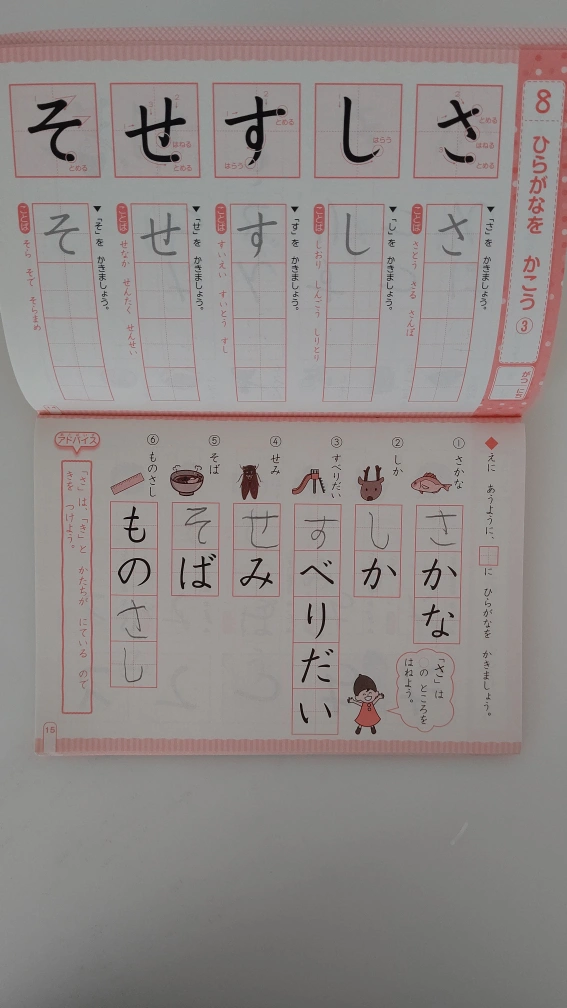 8 ひらがなを かこう ③
がつ にち
さ
とめる
はねる
とめる
し
はらう
す
とめる
はらう
せ
はねる
とめる
そ
とめる
▼「さ」を かきましょう。
さ
ことば さとう さる さんぽ
▼「し」を かきましょう。
し
ことば しおり しんごう しりとり
▼「す」を かきましょう。
す
ことば すいえい すいとう すし
▼「せ」を かきましょう。
せ
ことば せなか せんたく せんせい
▼「そ」を かきましょう。
そ
ことば そら そで そらまめ
◆えに あうように、□に ひらがなを かきましょう。
① さかな
さかな
② しか
しか
③ すべりだい
すべりだい
④ せみ
せみ
⑤ そば
そば
⑥ ものさし
ものさし
「さ」は
の ところを
はねよう。
アドバイス
「さ」は、「き」と かたちが にている ので、
きを つけよう。
15